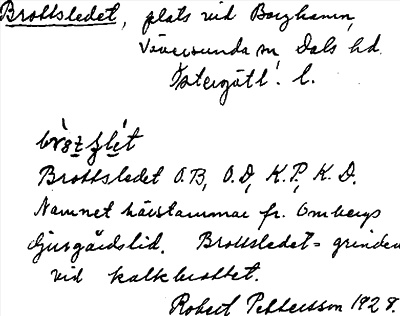 Brottsledet, plats vid Borghamn,
Väversunda sn Dals hd.
Östergötl. l.
Brottsledet O.B, O.D, K.P, K.D.
Namnet härstammar fr. Ombergs
djurgårdstid. Brottsledet = grinden
vid kalkbrottet.
Robert Pettersson 1928.